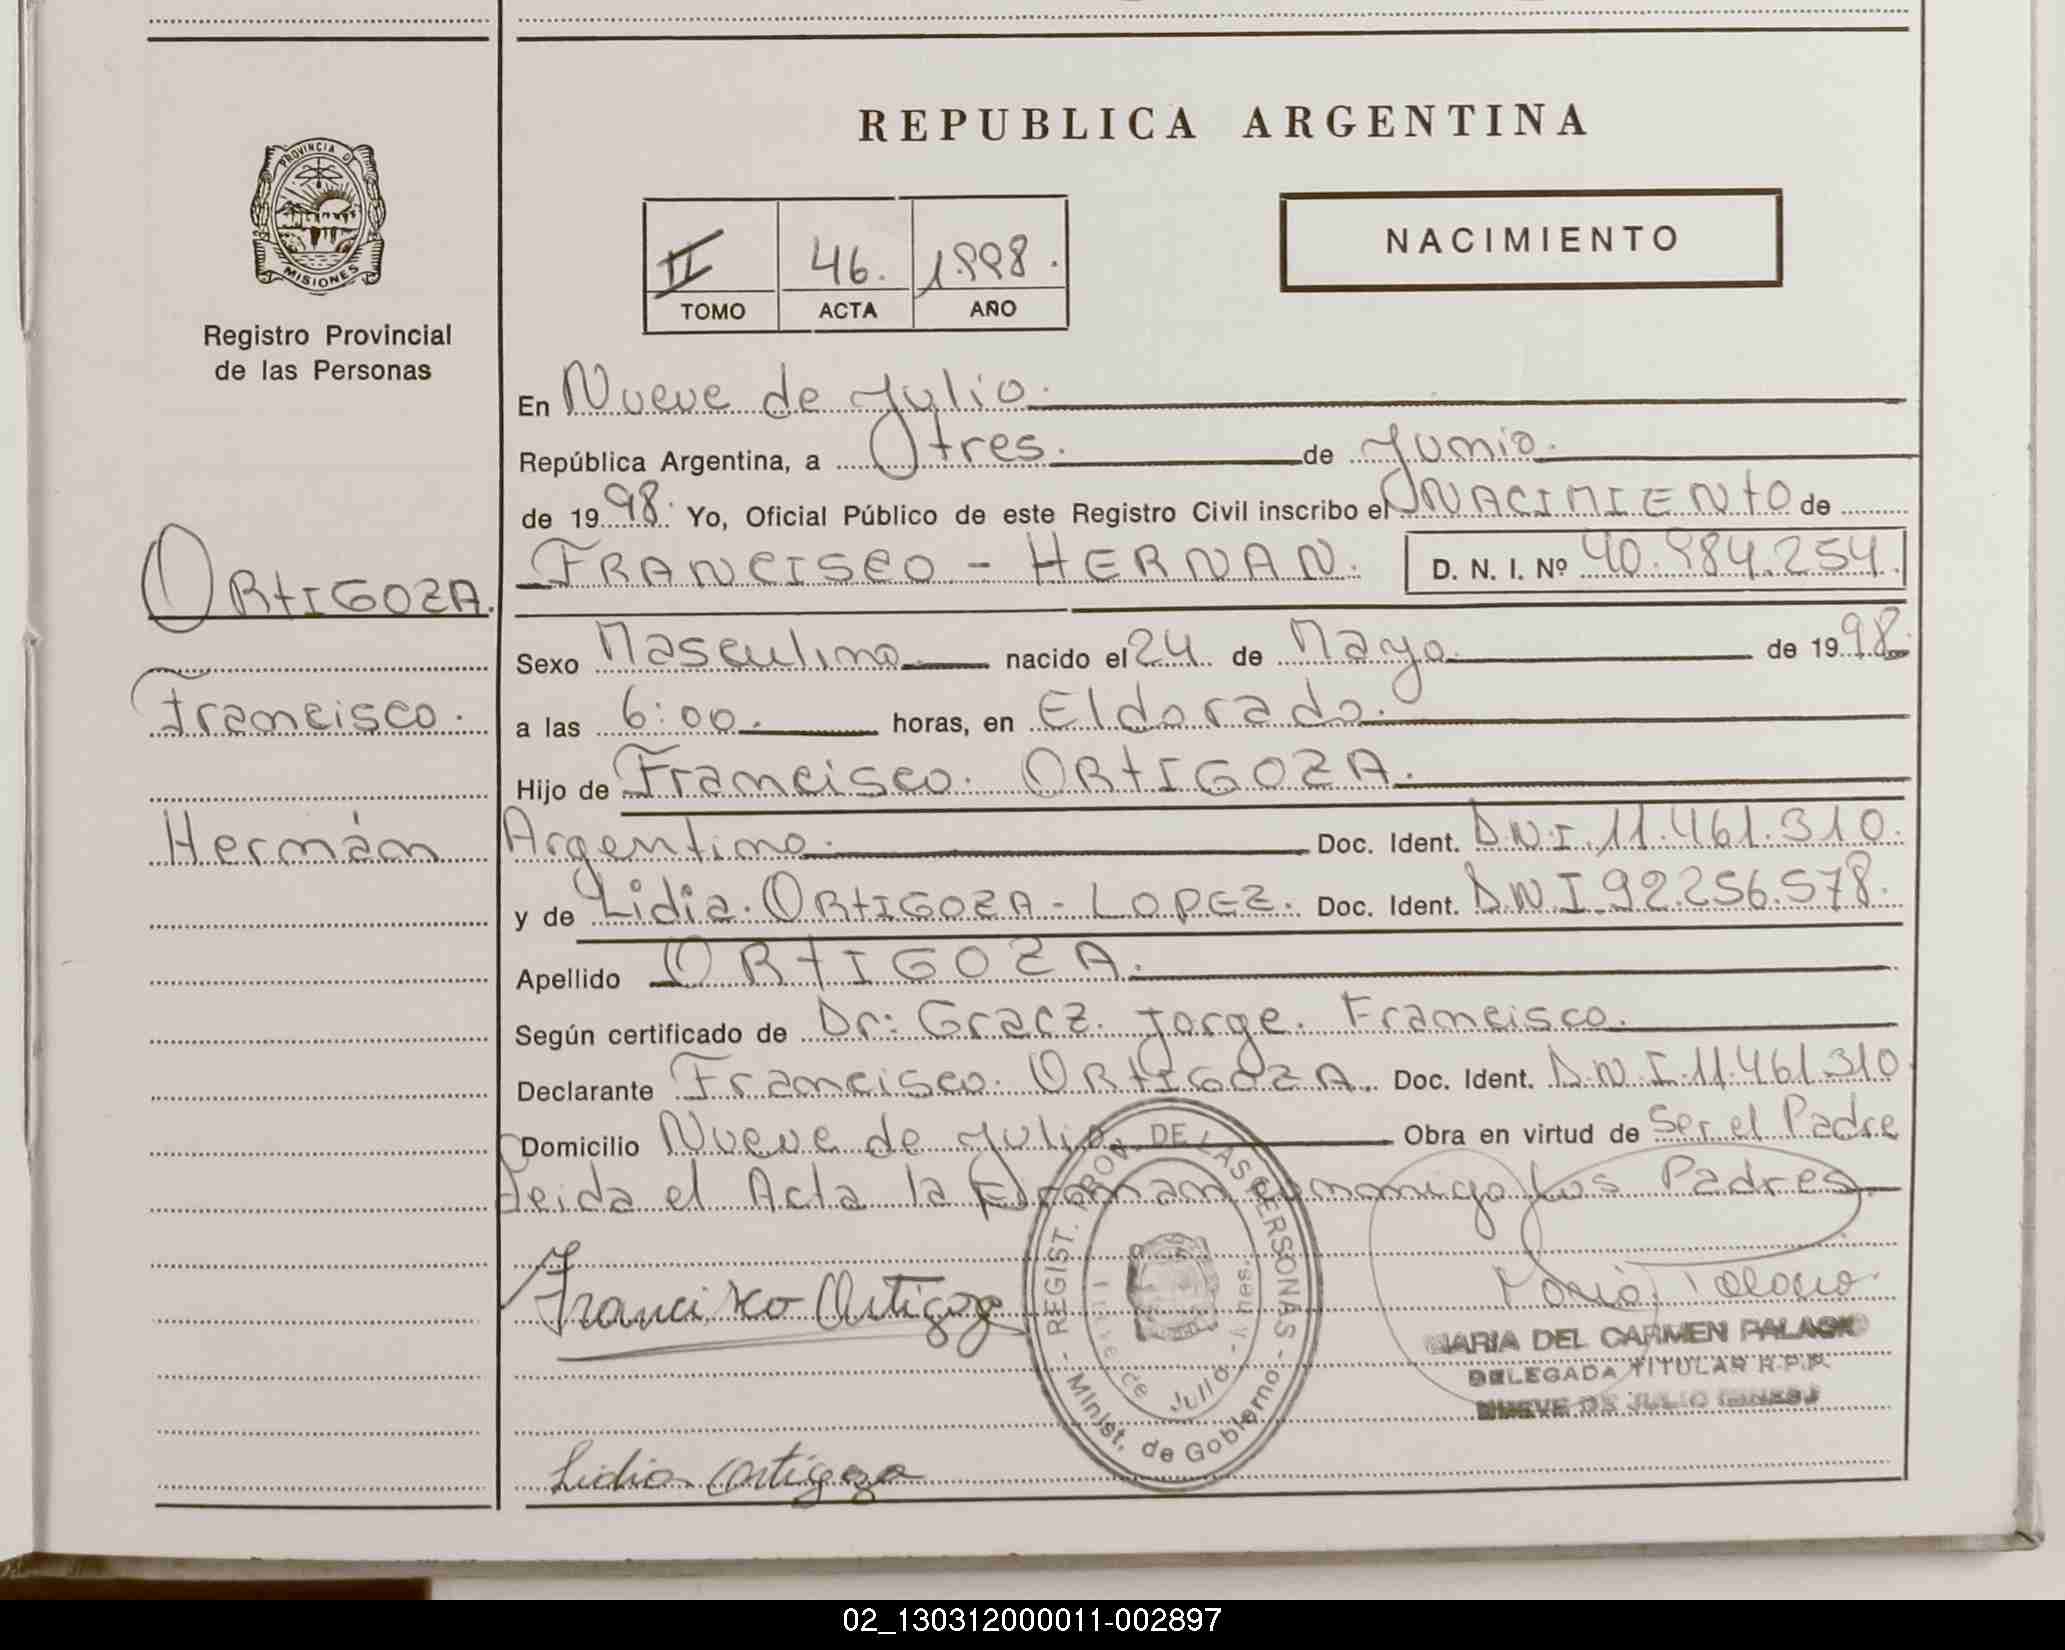 REPUBLICA ARGENTINA
PROVINCIA D
MISIONES
Registro Provincial
de las Personas
II 46. 1998.
TOMO ACTA AÑO
NACIMIENTO
ORtIGOZA.
Francisco.
Hernán
En Nueve de Julio.
República Argentina, a tres. de Junio.
de 1998. Yo, Oficial Público de este Registro Civil inscribo el NACIMIENtO de
FRANCISCO - HERNAN. D. N. I. Nº 40.984.254.
Sexo Masculino nacido el 24 de Mayo de 1998.
a las 6:00. horas, en Eldorado.
Hijo de Francisco. ORtIGOZA.
Argentino. Doc. Ident. D.N.I. 11.461.310.
y de Lidia. ORtIGOZA - LOPEZ. Doc. Ident. D.N.I. 92.256.578.
Apellido ORtIGOZA.
Según certificado de Dr: Gracz. Jorge. Francisco.
Declarante Francisco. ORtIGOZA. Doc. Ident. D.N.I. 11.461.310
Domicilio Nueve de Julio. Obra en virtud de Ser el Padre
Leida el Acta la Firman conmigo Los Padres.
Francisco Ortigoza
REGIST. PROV. DE LAS PERSONAS - Minist. de Gobierno -
de Julio
MARIA DEL CARMEN PALACIO
DELEGADA TITULAR R.P.P.
NUEVE DE JULIO
Lidia Ortigoza
02_130312000011-002897